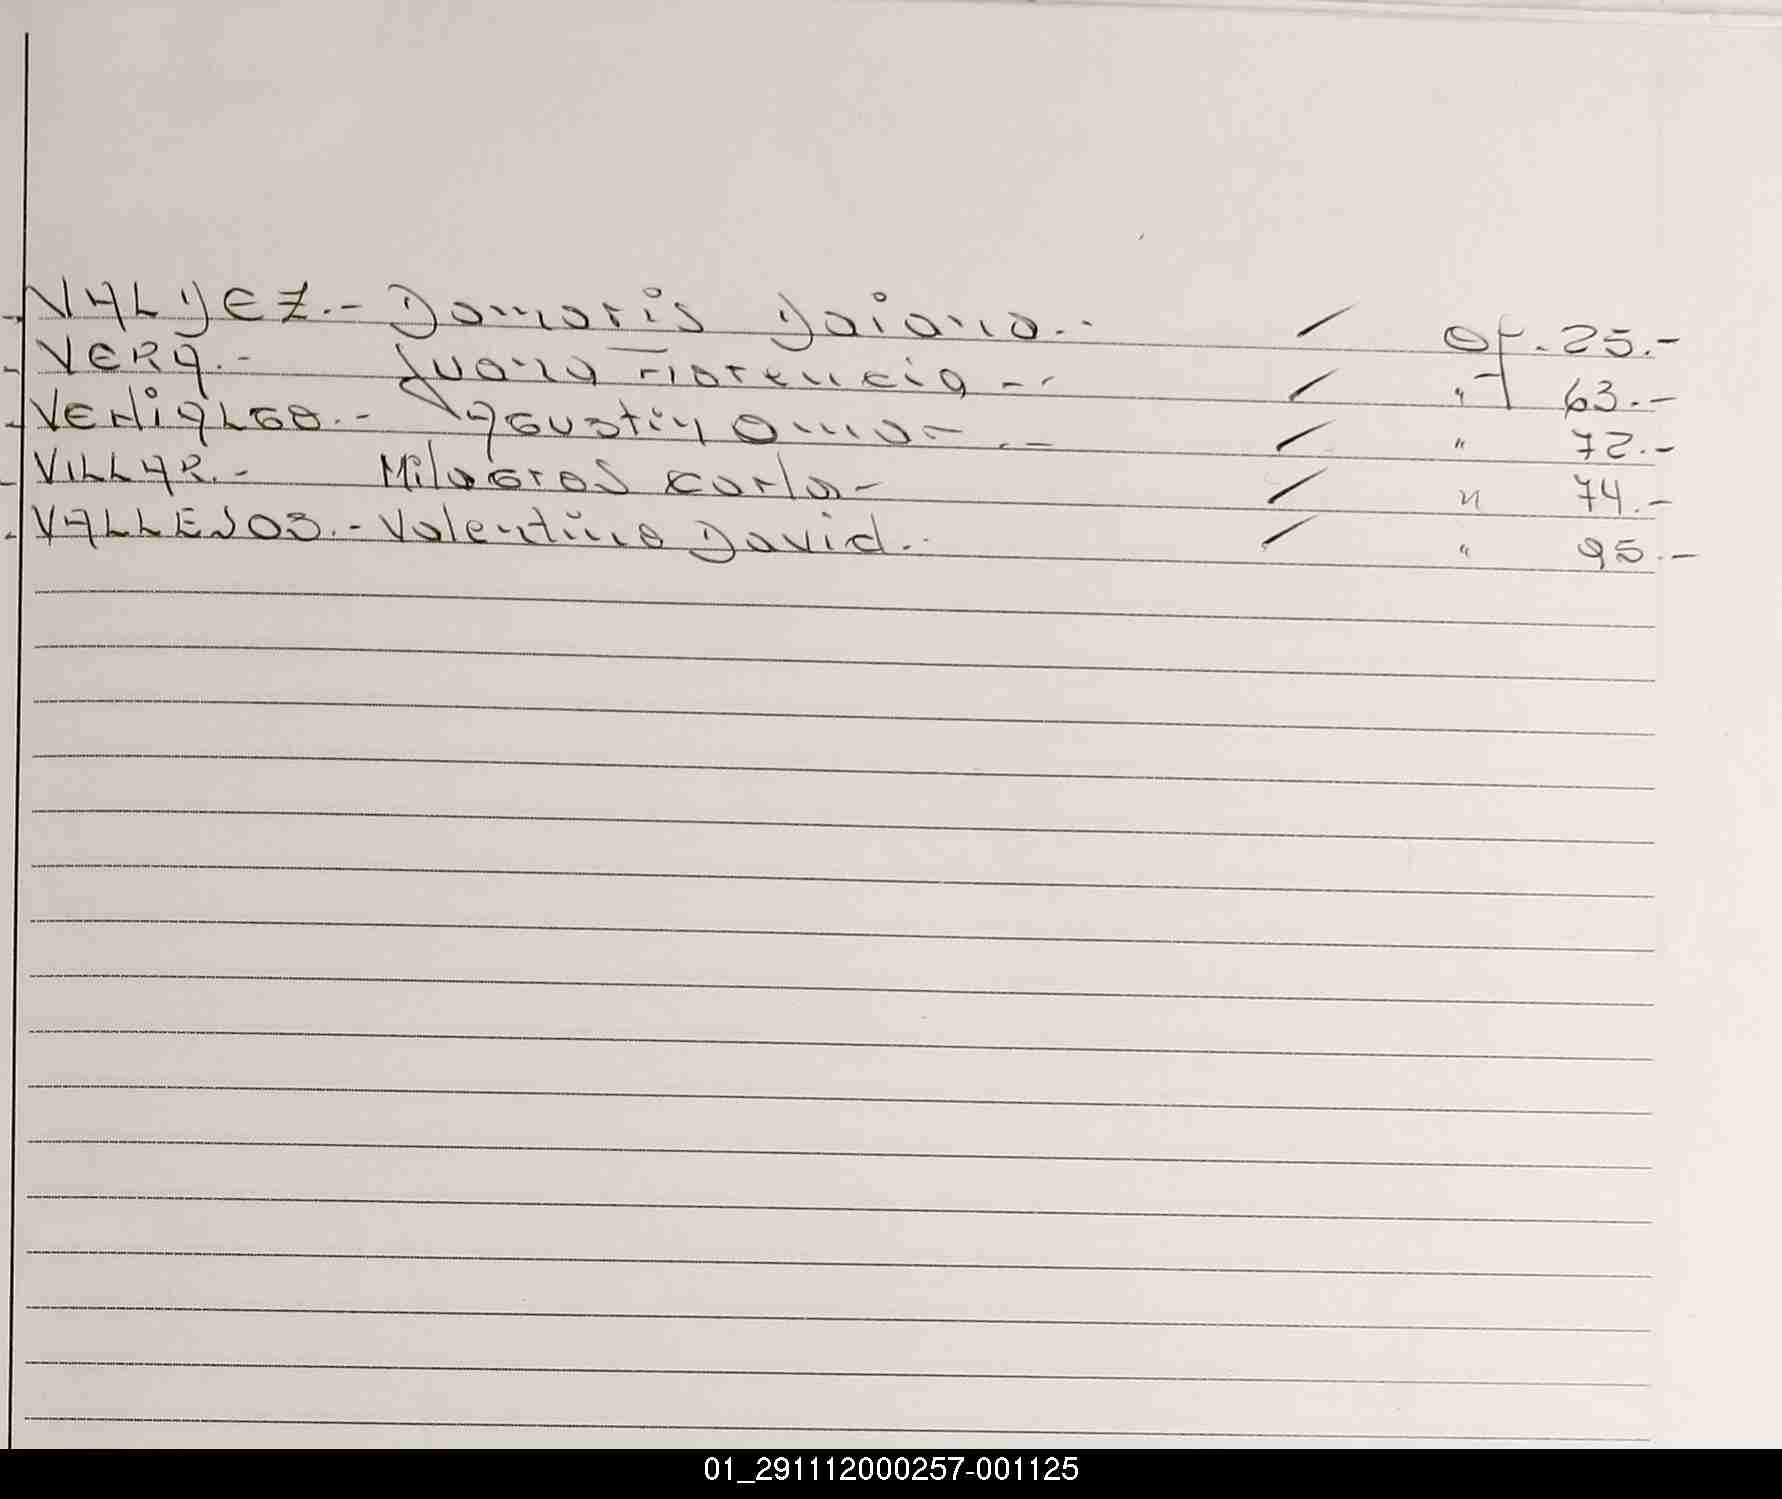 VALDEZ.- Damaris Daiana.- / Of. 25.-
VERA.- Juana Florencia.- / " 63.-
Agustin Omar.- / " 72.-
VILLAR.- Milagros Carla- / " 74.-
VALLEJOS.- Valentino David.- / " 95.-
01_291112000257-001125